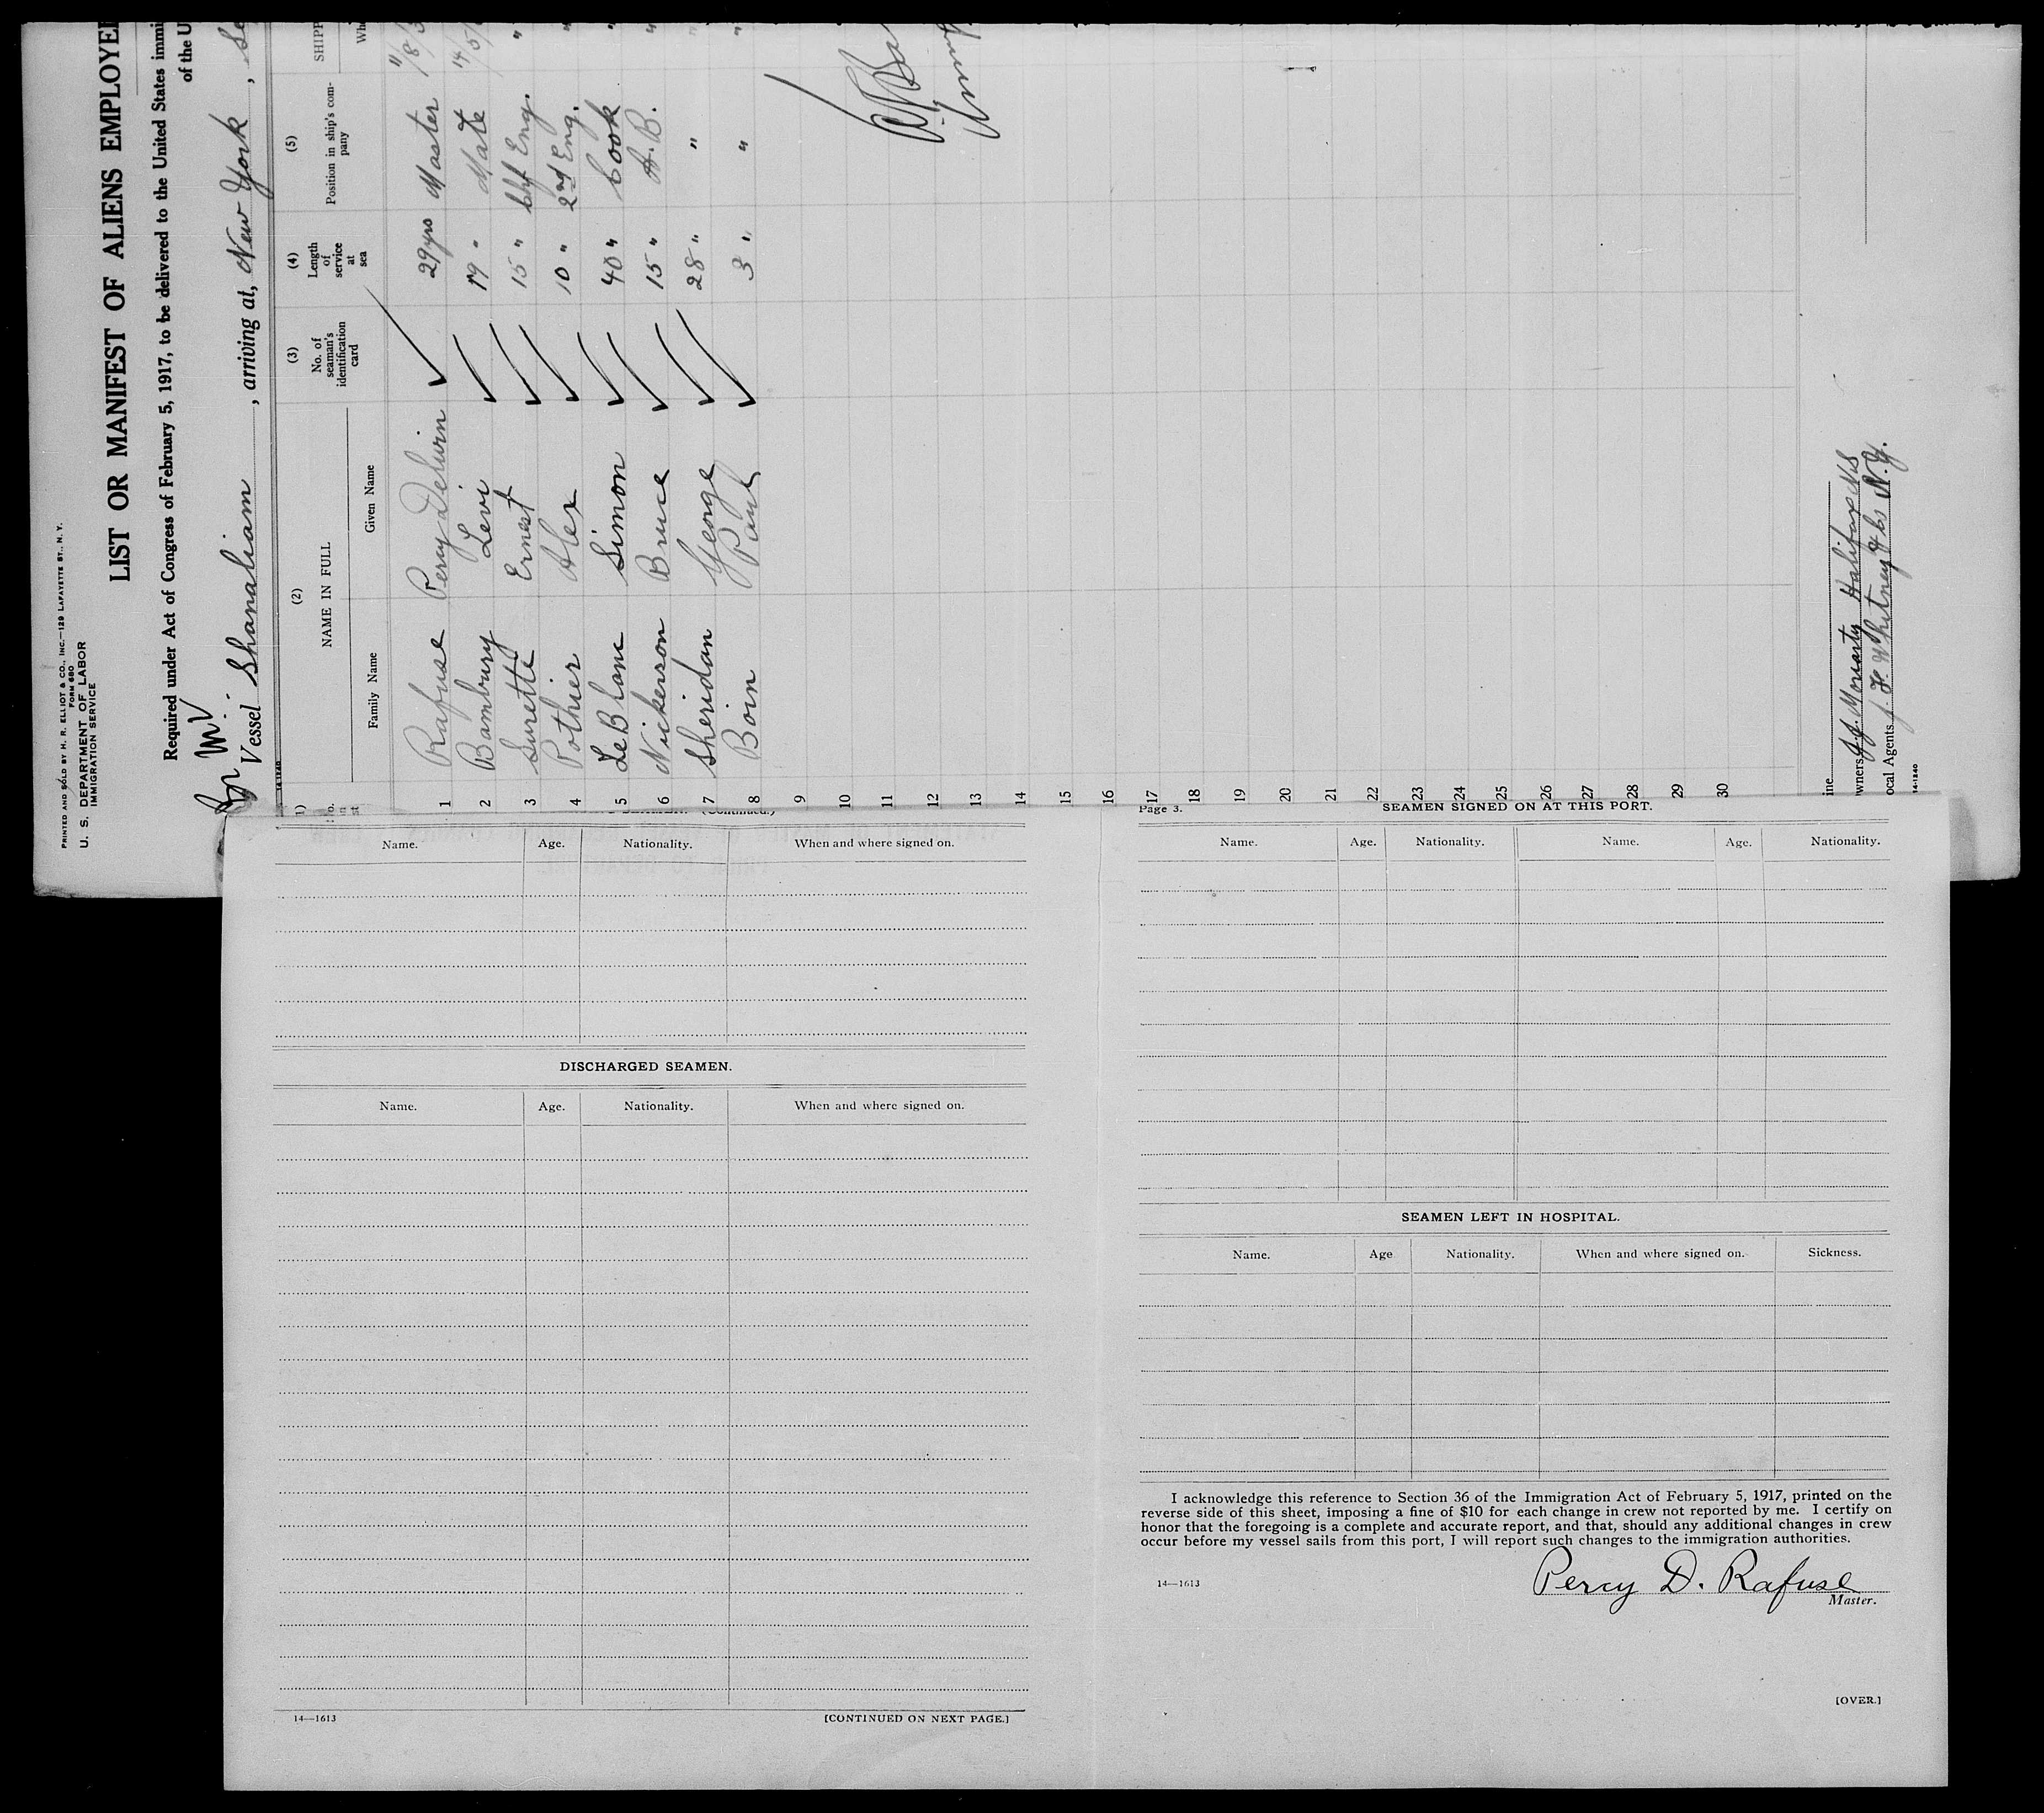 PRINTED AND SOLD BY H. R. ELLIOT & CO., INC.—129 LAFAYETTE ST., N. Y.
FORM 680
U. S. DEPARTMENT OF LABOR
IMMIGRATION SERVICE
LIST OR MANIFEST OF ALIENS EMPLOYE
Required under Act of Congress of February 5, 1917, to be delivered to the United States immi
of the U
Vessel Shanaliam, arriving at, New York, Se
14-1240
(2) (3) (4) (5)
NAME IN FULL No. of seaman's identification card Length of service at sea Position in ship's company SHIPP
Family Name Given Name Wh
1 Rafuse Percy Delwin 29 yrs Master 11/8/3
2 Bambury Levi 19 " Mate 14/5/
3 Surette Ernest 15 " Chf Eng. "
4 Pothier Alex 10 " 2nd Eng. "
5 LeBlanc Simon 40 " Cook "
6 Nickerson Bruce 15 " A.B. "
7 Sheridan George 28 " " "
8 Boin Paul 3 " " "
9
10
11
12
13
14
15
16
17
18
19
20
21
22
23
24
25
26
27
28
29
30
ine
wners J.J. Moriarty Halifax NS
ocal Agents J. F. Whitney & Co N.Y.
14-1240
(Continued.)
Name. Age. Nationality. When and where signed on.
DISCHARGED SEAMEN.
Name. Age. Nationality. When and where signed on.
14—1613 [CONTINUED ON NEXT PAGE.]
Page 3. SEAMEN SIGNED ON AT THIS PORT.
Name. Age. Nationality. Name. Age. Nationality.
SEAMEN LEFT IN HOSPITAL.
Name. Age Nationality. When and where signed on. Sickness.
I acknowledge this reference to Section 36 of the Immigration Act of February 5, 1917, printed on the
reverse side of this sheet, imposing a fine of $10 for each change in crew not reported by me. I certify on
honor that the foregoing is a complete and accurate report, and that, should any additional changes in crew
occur before my vessel sails from this port, I will report such changes to the immigration authorities.
14—1613 Percy D. Rafuse
Master.
[OVER.]